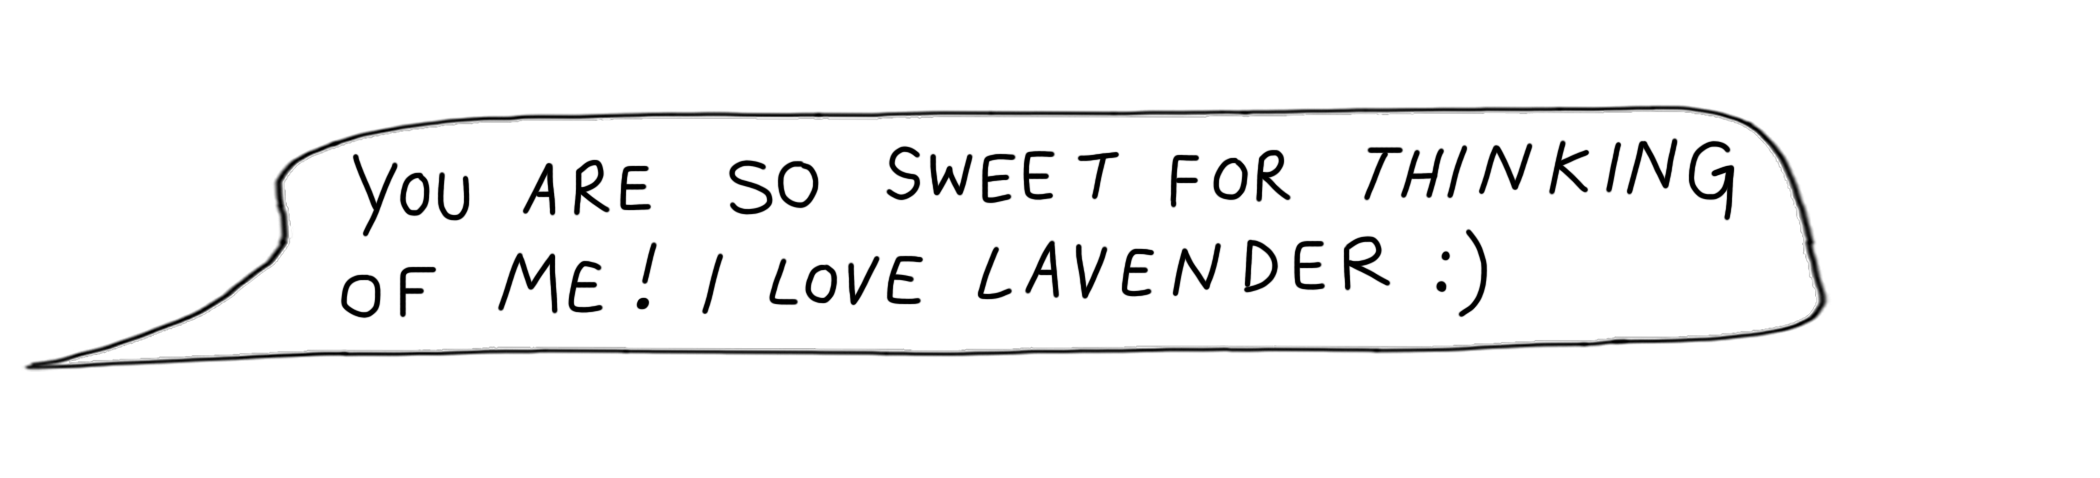 YOU ARE SO SWEET FOR THINKING
OF ME! I LOVE LAVENDER :)